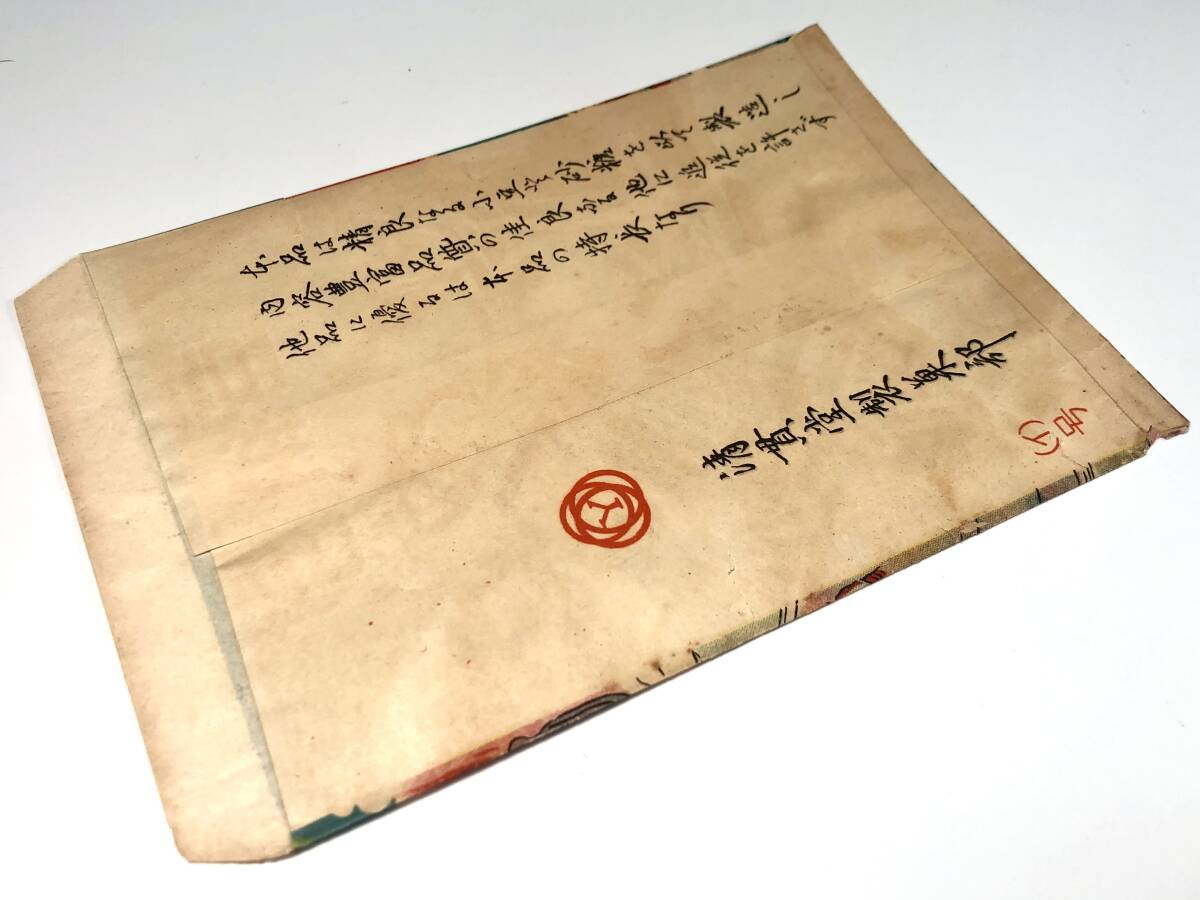 本品は精良なる小豆と砂糖を以て製造し
内容豊富品質の佳良なる他に追従を許さず
他品に優るは本品の特長なり
製菓部